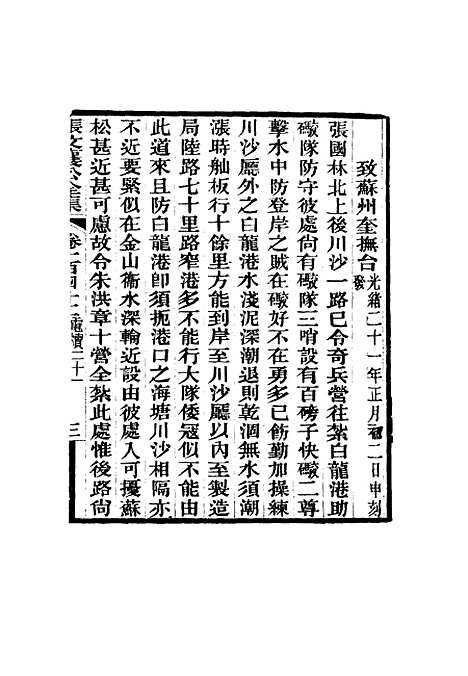 致蘇州奎撫台光緒二十一年正月初二日申刻發
張國林北上後川沙一路已令奇兵營往紥白龍港助
礮隊防守彼處尙有礮隊三哨設有百磅子快礮二尊
擊水中防登岸之賊在礮好不在勇多已飭勤加操練
川沙廳外之白龍港水淺泥深潮退則乾涸無水須潮
漲時舢板行十餘里方能到岸至川沙廳以內至製造
局陸路七十里路窄港多不能行大隊倭寇似不能由
此道來且防白龍港卽須扼港口之海塘川沙相隔亦
不近要緊似在金山衞水深輪近設由彼處入可擾蘇
松甚近甚可慮故令朱洪章十營全紮此處惟後路尙
張文襄公全集 卷一百四十二 電牘二十一 三